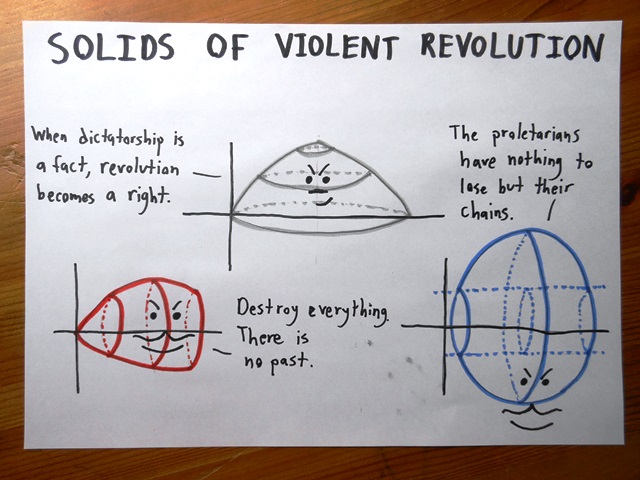 SOLIDS OF VIOLENT REVOLUTION
When dictatorship is
a fact, revolution
becomes a right.
The proletarians
have nothing to
lose but their
chains.
Destroy everything.
There is
no past.